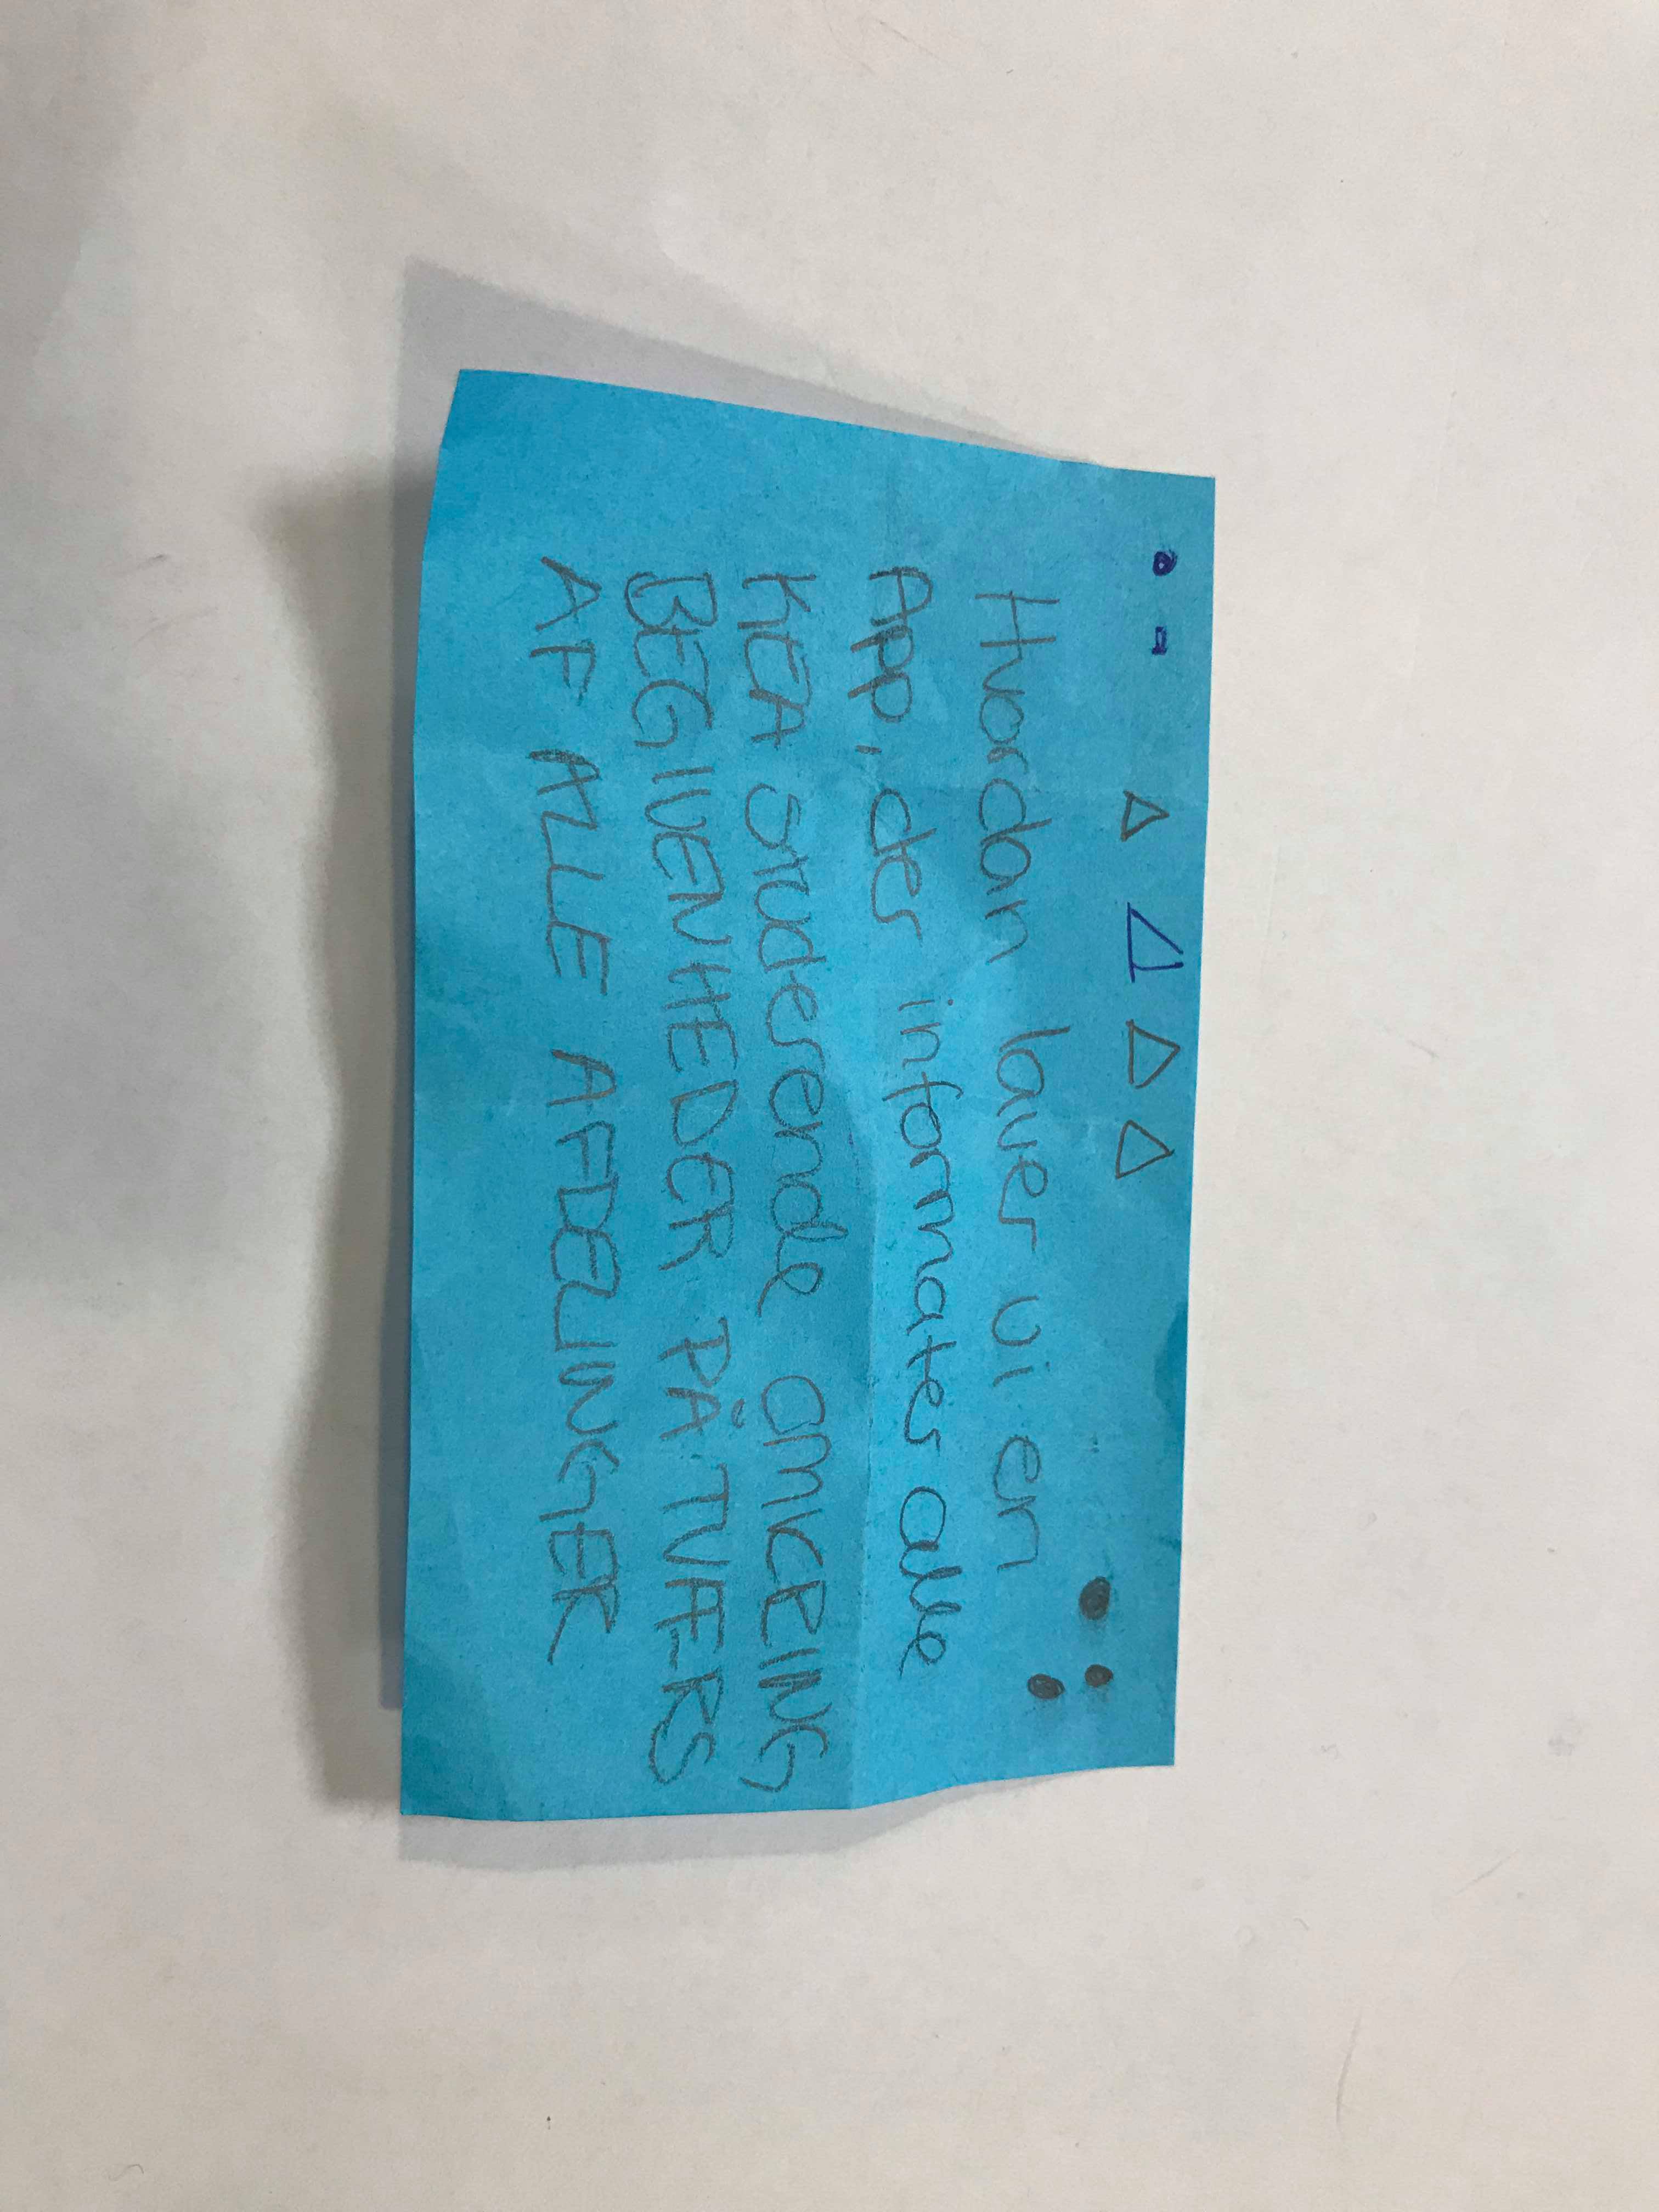 Hvordan laver vi en
App, der informater alle
KEA studerende omkring
BEGIVENHEDER PÅ TVÆRS
AF ALLE AFDELINGER